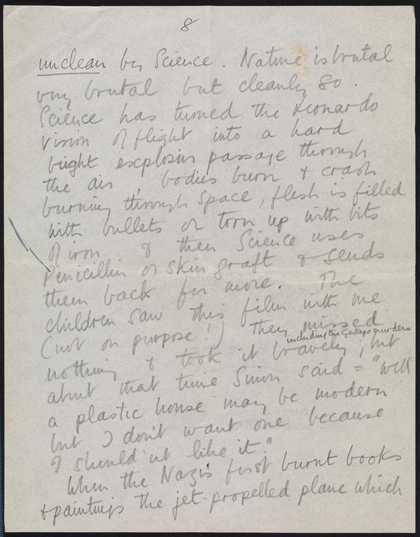 8
unclean by Science. Nature is brutal
very brutal but cleanly so.
Science has turned the Leonardo
vision of flight into a hard
bright explosive passage through
the air, bodies burn & crash
burning through space, flesh is filled
with bullets or torn up with bits
of iron & then Science uses
Penicillin or skin graft & sends
them back for more. The
children saw this film with me
(not on purpose,) they missed
including the gallows murders
nothing & took it bravely, but
about that time Simon said = "well
a plastic house may be modern
but I don't want one because
I should'nt like it."
When the Nazis first burnt books
& paintings the jet-propelled plane which